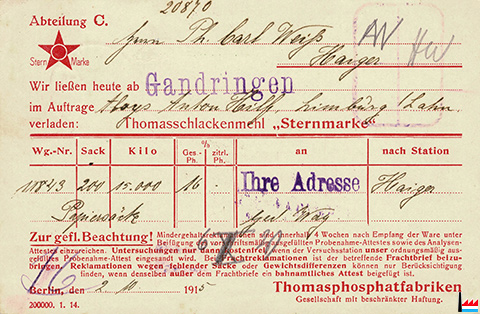 20870
Abteilung C.
Herrn Ph. Carl Weiß
Haiger
Stern Marke
AW
Wir ließen heute ab Gandringen
im Auftrage Aloys Anton Hilf, Limburg / Lahn
verladen: Thomasschlackenmehl „Sternmarke”
Wg.-Nr. Sack Kilo Ges.-Ph. % zitrl. Ph. an nach Station
11843 200 15.000 16 Ihre Adresse Haiger
Papiersäcke
Zur gefl. Beachtung! Mindergehaltsreklamationen sind innerhalb 4 Wochen nach Empfang der Ware unter
Beifügung des vorschriftsmäßig ausgefüllten Probenahme-Attestes sowie des Analysen-
Attestes einzureichen. Untersuchungen nur dann kostenfrei, wenn der Versuchsstation unser ordnungsmäßig aus-
gefülltes Probenahme-Attest eingesandt wird. Bei Gewichtsreklamationen ist der betreffende Frachtbrief beizu-
bringen. Reklamationen wegen fehlender Säcke oder Gewichtsdifferenzen können nur Berücksichtigung
finden, wenn denselben außer dem Frachtbriefe ein bahnamtliches Attest beigefügt ist.
Berlin, den 2. 10 1915
Thomasphosphatfabriken
Gesellschaft mit beschränkter Haftung.
200000. 1. 14.